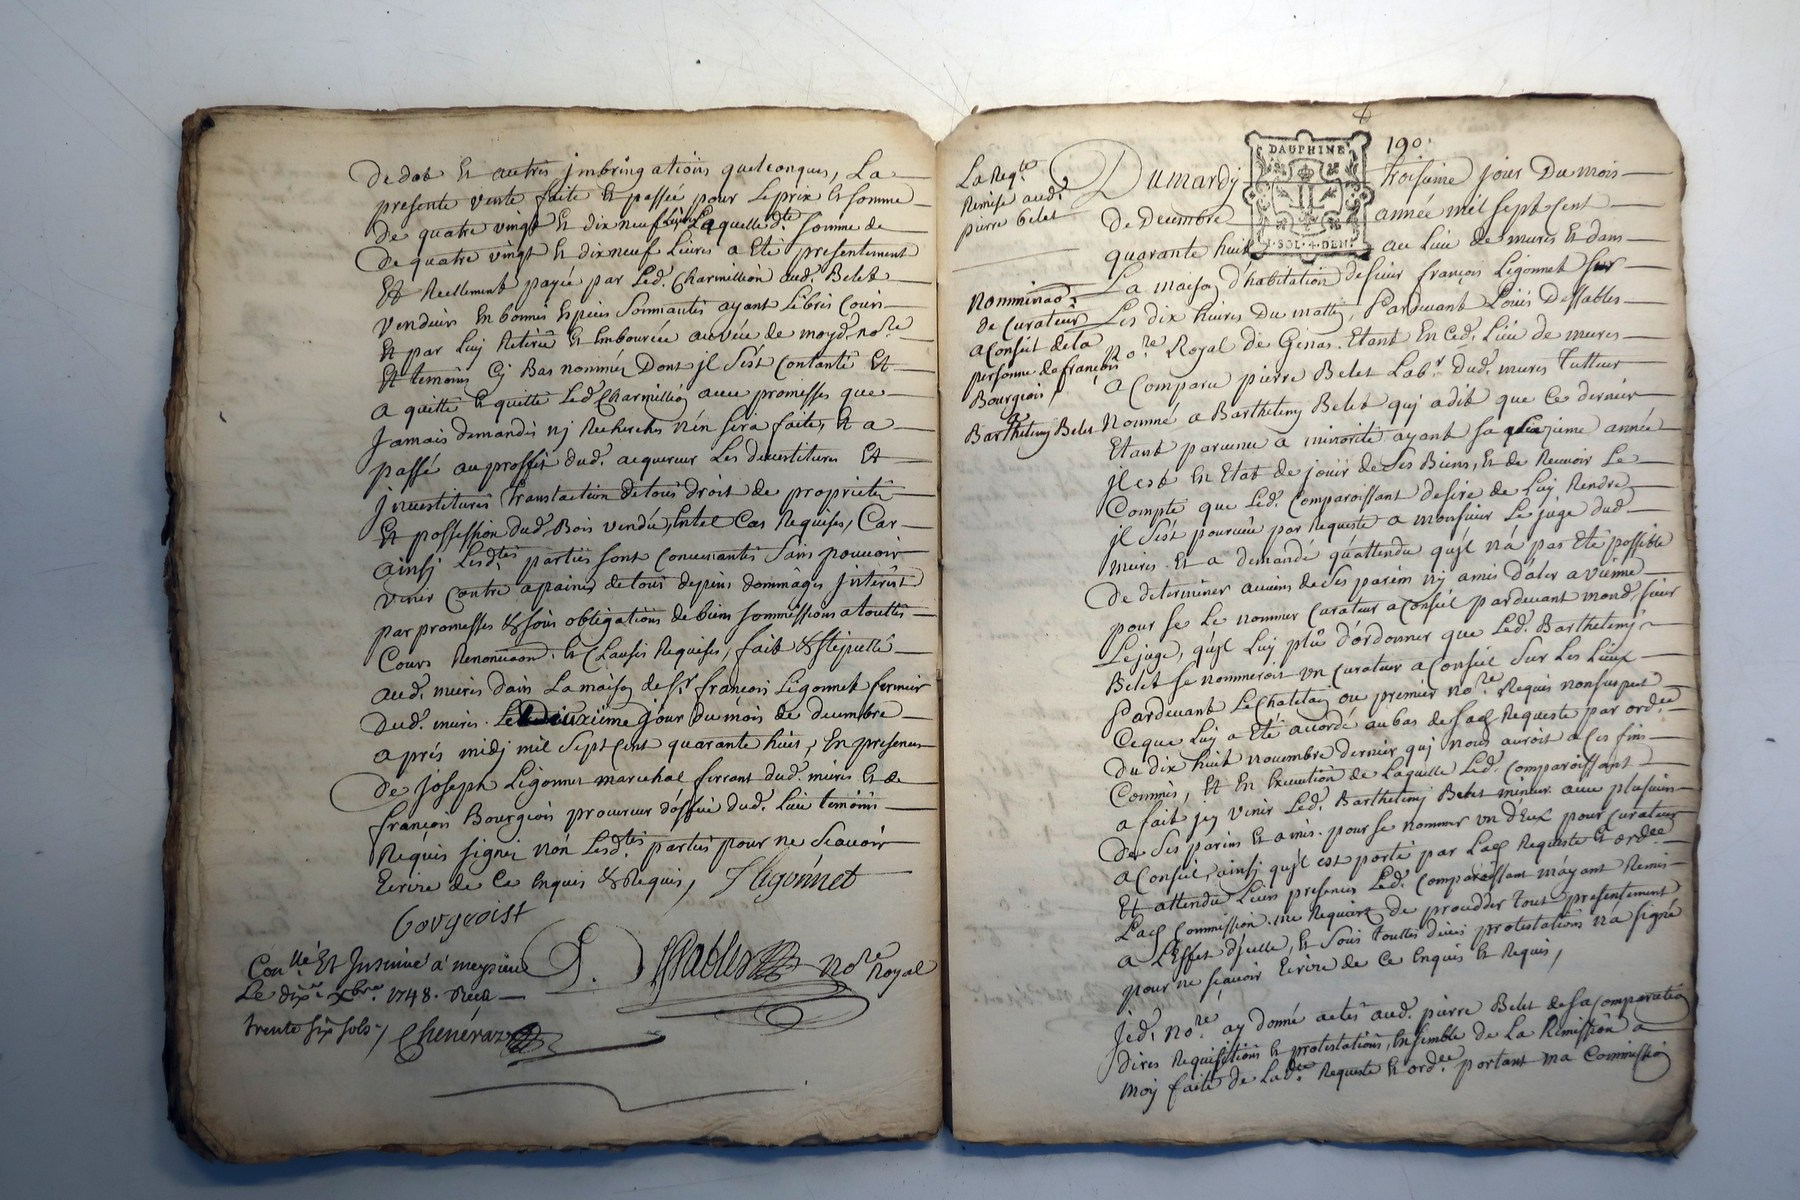 de dot et autres jmbringations quelconques, La
presente vente faite et passée pour Le prix et somme
de quatre vingt et dix neuf Livres Laquelle dte somme de
de quatre vingt et dix neuf Livres a Eté presentement
Et Reellement payée par Led. Charmillion aud. Belet
vendeur En bonnes Especes Sonnantes ayant
Et par Luy Retirée et Emboursée au veu de moyd. nore
Et temoins Cy Bas nommés Dont jl S'est Contanté Et
a quitté et quitte Led. Charmillion avec promesses que
Jamais demandes nj Recherches n'en Sera faite, Et a
passé au proffit dud. acquereur Les devestitures Et
jnvestitures translaction de tous droit de proprieté
Et possession dud. Bois vendu, Entel Cas Requises, Car
ainsj Lesdtes parties sont Convenantes Sans pouvoir
venir Contre a paine de tous depens dommages jnterêst
par promesses & sous obligations de biens sommissions a touttes
Cours Renonciaon. et Clauses Requises, fait & stipullé
aud. mures dans La maison de Sr. françois Ligonnet fermier
dud. mures. Le Deuxiême jour du mois de decembre
aprés midj mil Sept Cent quarante huit, En presence
de Joseph Ligonnet marechal ferrant dud. mures et de
françois Bourgeois procureur d'office dud. Lieu temoins
Requis signes non Lesdtes parties pour ne Scavoir
Ecrire de Ce Enquis & Requis, JLigonnet
Bovrgeoist
L. DesSables Nore Royal
Conllé Et Jnsinué a meysieu
Le dixe. Xbre. 1748. Reçu
trente six sols, Chenéraz
190.
DAUPHINE
1 · SOL · 4 · DEN
La Reqte
Remise aud.
pierre belet
Nominaõn
de Curateur
a Conseil de la
personne de françois
Bourgeois, a
Barthelemy Belet
Du mardy troisieme jour Du mois
de Decembre année mil sept Cent
quarante huit au Lieu de mures Et dans
La maison d'habitation de sieur françois Ligonnet Sur
Les dix heures Du matin, Pardevant Louis Dessables
nore Royal de Genas. Etant En Ced. Lieu de mures
a Comparu pierre Belet Labr. dud. mures tutteur
Nommé a Barthelemy Belet quj a dit que Ce dernier
Etant parvenu a minorité ayant sa année
jl est En Etat de jouir de Ses Biens, et de Recevoir Le
Compte que Led. Comparoissant desire de Luy Rendre
jl S'est pourvû par Requeste a monsieur Le juge dud.
mures. Et a demandé qu'attendu qu'jl n'a pas Eté possible
de determiner aucuns de Ses parens nj amis d'aler a vienne
pour se Le nommer Curateur a Conseil pardevant mond. sieur
Le juge, qu'jl Luy plû d'ordonner que Led. Barthelemj
Belet se nommeroit un Curateur a Conseil Sur Les Lieux
Pardevant Le Chatelain ou premier nore. Requis non suspect
Ceque Luy a Eté accordé au bas de sad. Requeste par ordce.
du dix huit novembre dernier quj nous auroit a Ces fins
Commis, Et En Execution de Laquelle Led. Comparoissant
a fait jcy venir Led. Barthelemj Belet mineur avec plusieurs
de Ses parens et amis. pour se nommer un d'Eux pour Curateur
a Conseil, ainsj qu'jl est porté par Lad. Requeste et ordce.
Et attendu Leurs presences Led. Comparoissant m'ayant Remis
Lad. Commission. me Requiert de proceder tout presentement
a L'Effet d'jcelle, Et sous touttes dues protestations n'a signé
pour ne sçavoir Ecrire de Ce Enquis et Requis,
Jed. nore. ay donné actes aud. pierre Belet de sa Comparution
dires Requisitions et protestations, Ensemble de La Remission a
moy faite de Lade. Requeste et ordce. portant ma Commission